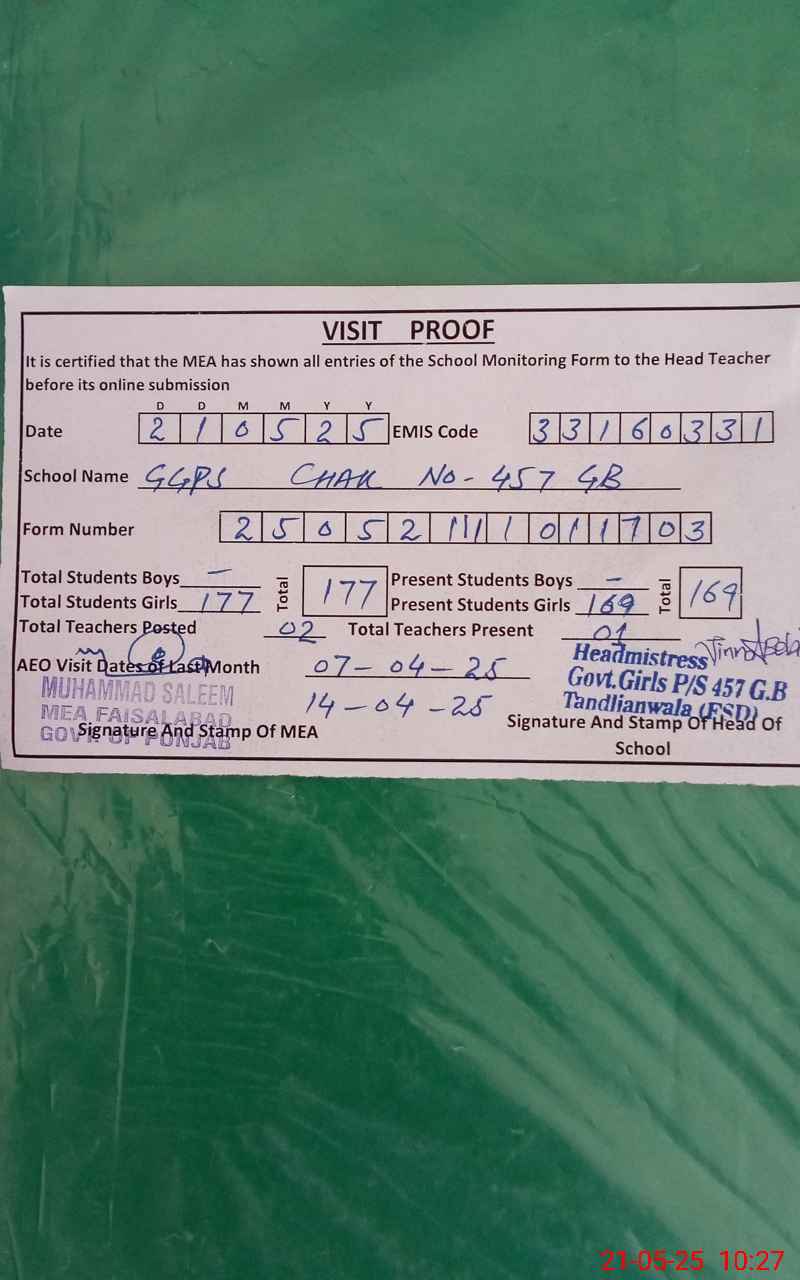 VISIT PROOF
It is certified that the MEA has shown all entries of the School Monitoring Form to the Head Teacher
before its online submission
D D M M Y Y
Date 2 1 0 5 2 5 EMIS Code 3 3 1 6 0 3 3 1
School Name GGPS CHAK No - 457 GB
Form Number 2 5 0 5 2 1 1 1 1 0 1 1 7 0 3
Total Students Boys - Total 177 Present Students Boys - Total 169
Total Students Girls 177 Present Students Girls 169
Total Teachers Posted 02 Total Teachers Present 01
AEO Visit Dates of Last Month 07-04-25
14-04-25
MUHAMMAD SALEEM
MEA FAISALABAD
GOVT. OF PUNJAB
Signature And Stamp Of MEA
Headmistress
Govt.Girls P/S 457 G.B
Tandlianwala (FSD)
Signature And Stamp Of Head Of
School
21-05-25 10:27